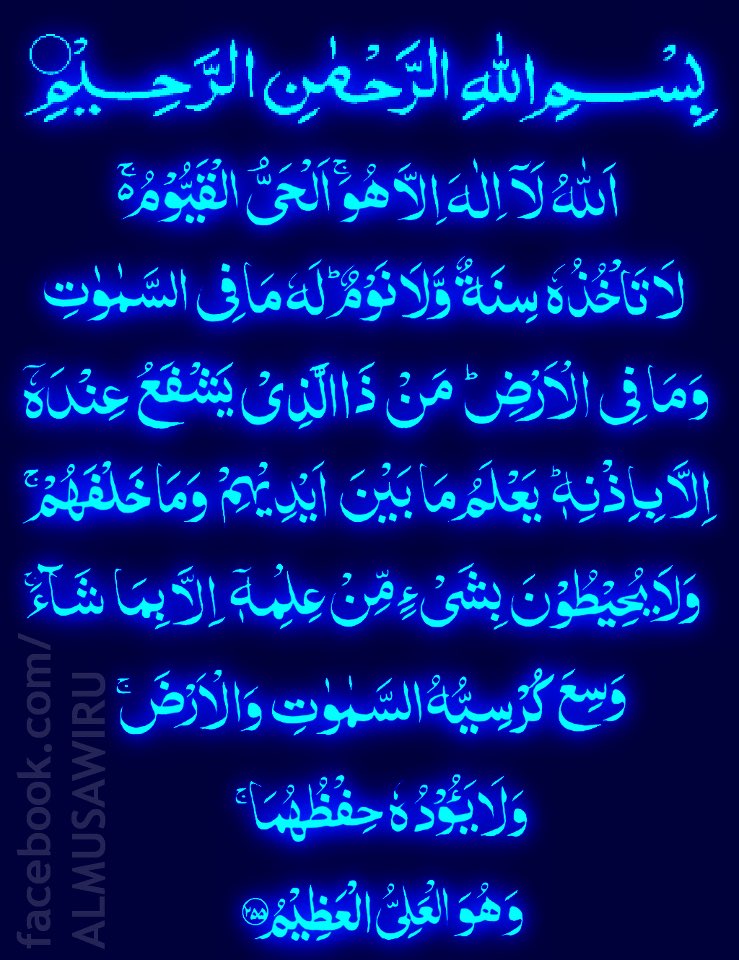 بِسْمِ اللّٰهِ الرَّحْمٰنِ الرَّحِیْمِ
اَللّٰهُ لَاۤ اِلٰهَ اِلَّا هُوَۚ اَلْحَیُّ الْقَیُّوْمُ ۚ۬
لَا تَاْخُذُهٗ سِنَةٌ وَّلَا نَوْمٌ ؕ لَهٗ مَا فِی السَّمٰوٰتِ
وَمَا فِی الْاَرْضِ ؕ مَنْ ذَا الَّذِیْ یَشْفَعُ عِنْدَهٗۤ
اِلَّا بِاِذْنِهٖ ؕ یَعْلَمُ مَا بَیْنَ اَیْدِیْهِمْ وَمَا خَلْفَهُمْ ۚ
وَلَا یُحِیْطُوْنَ بِشَیْءٍ مِّنْ عِلْمِهٖۤ اِلَّا بِمَا شَآءَ ۚ
وَسِعَ كُرْسِیُّهُ السَّمٰوٰتِ وَالْاَرْضَ ۚ
وَلَا یَــُٔوْدُهٗ حِفْظُهُمَا ۚ
وَهُوَ الْعَلِیُّ الْعَظِیْمُ ۝۲۵۵
facebook.com/
ALMUSAWIRU